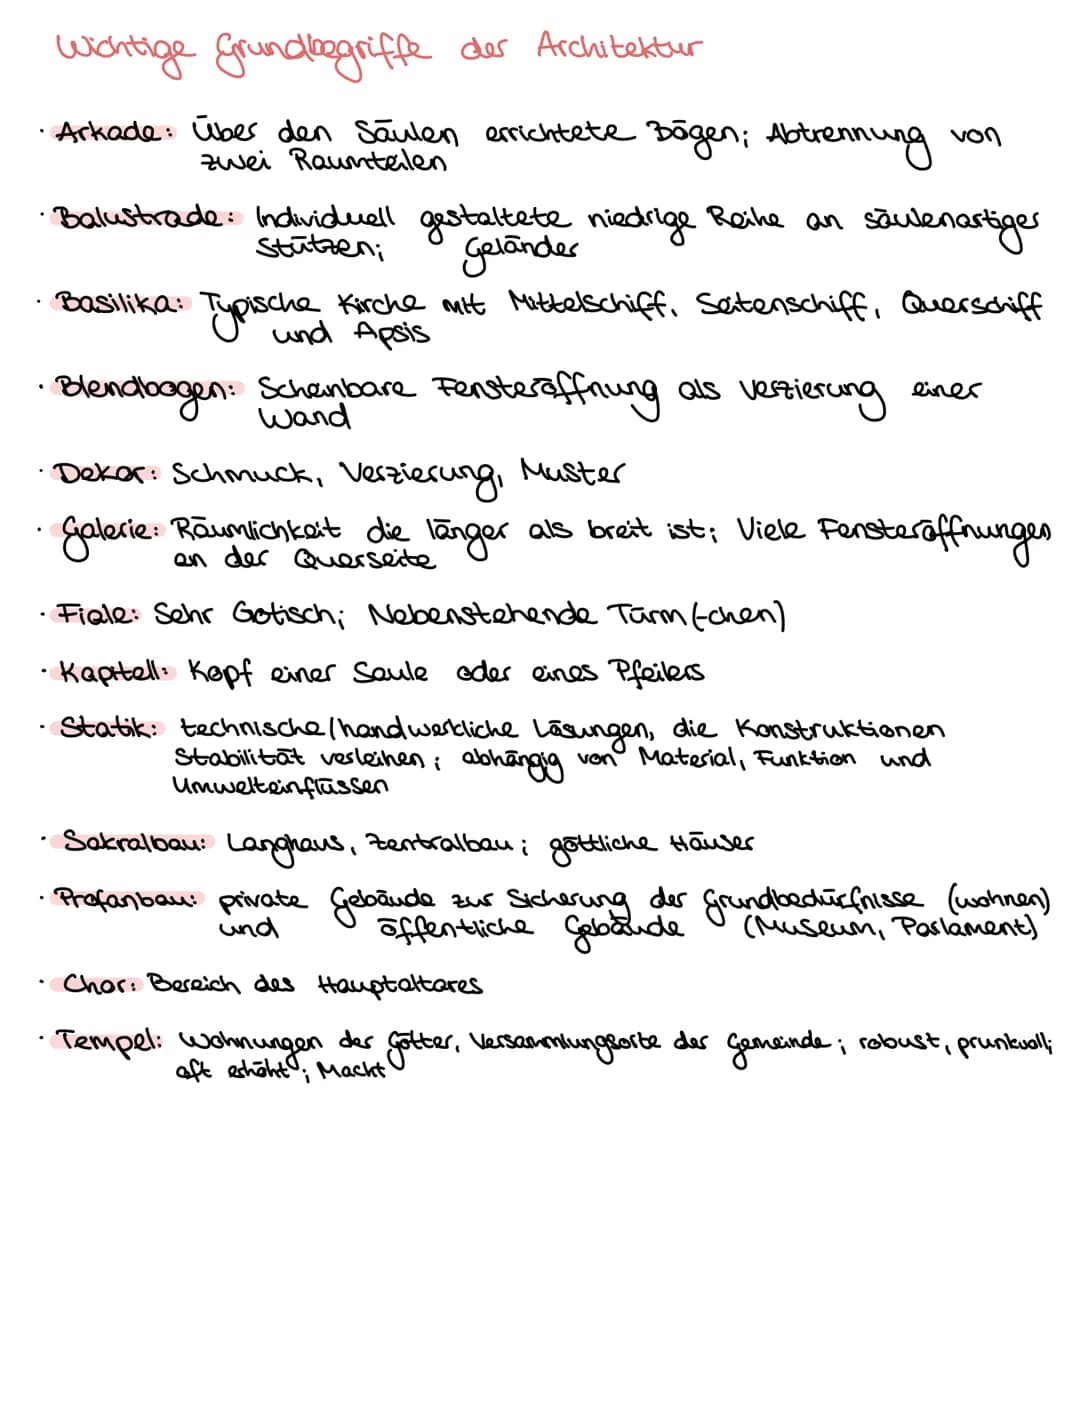 Wichtige Grundbegriffe der Architektur
· Arkade: Über den Säulen errichtete Bögen; Abtrennung von
zwei Raumteilen
· Balustrade: Individuell gestaltete niedrige Reihe an säulenartiger
Stützen; Geländer
· Basilika: Typische Kirche mit Mittelschiff, Seitenschiff, Querschiff
und Apsis
· Blendbogen: Scheinbare Fensteröffnung als Verzierung einer
Wand
· Dekor: Schmuck, Verzierung, Muster
· Galerie: Räumlichkeit die länger als breit ist; Viele Fensteröffnungen
an der Querseite
· Fiale: Sehr Gotisch; Nebenstehende Turm (-chen)
· Kapitell: Kopf einer Säule oder eines Pfeilers
· Statik: technische/handwerkliche Lösungen, die Konstruktionen
Stabilität verleihen; abhängig von Material, Funktion und
Umwelteinflüssen
· Sakralbau: Langhaus, Zentralbau; göttliche Häuser
· Profanbau: private Gebäude zur Sicherung der Grundbedürfnisse (wohnen)
und öffentliche Gebäude (Museum, Parlament)
· Chor: Bereich des Hauptaltares
· Tempel: Wohnungen der Götter, Versammlungsorte der Gemeinde; robust, prunkvoll;
oft erhöht; Macht